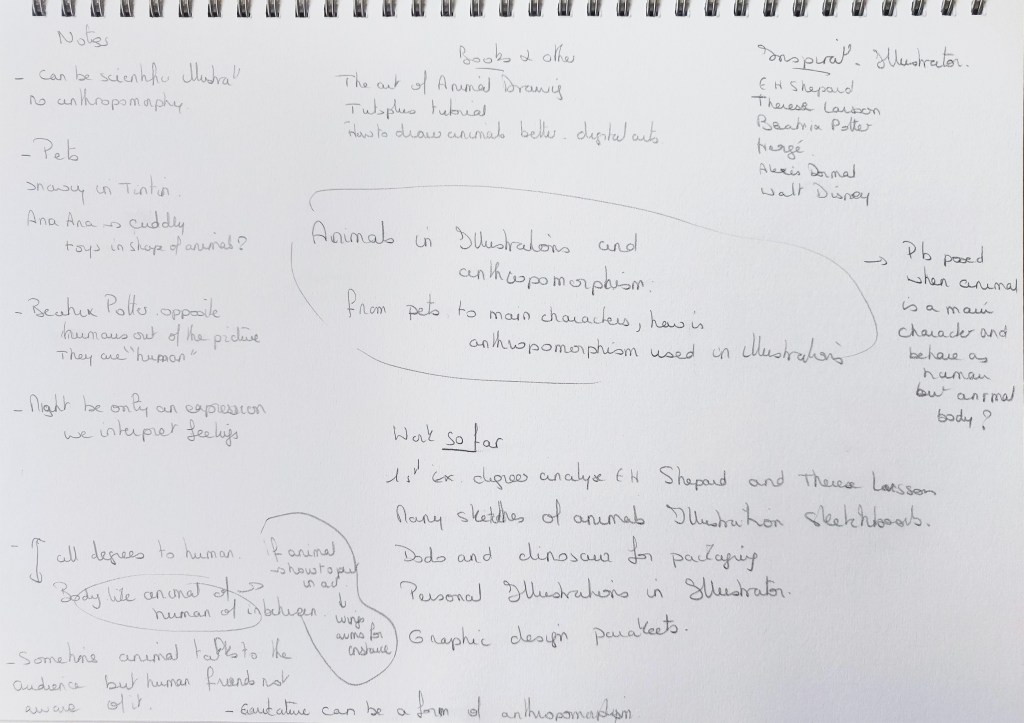 Notes
- Can be scientific illustrat°
no anthropomorphy.
- Pets
Snowy in Tintin.
Ana Ana → cuddly
toys in shape of animals?
- Beatrix Potter opposite
humans out of the picture
They are "human"
- Might be only an expression
we interpret feelings
- all degrees to human.
Body like animal of →
human of inbetween.
if animal
→ how to put
in ad
↓
wings
arms for
instance
- Sometime animal talks to the
audience but human friends not
aware of it.
- Caricature can be a form of anthropomorphism
Books & other
The art of Animal Drawing
Tutsplus tutorial
How to draw animals better. digital arts
Inspirat°. Illustrator.
E H Shepard
Therese Larsson
Beatrix Potter
Hergé.
Alexis Dormal
Walt Disney
Animals in Illustrations and
anthropomorphism.
from pets to main characters, how is
anthropomorphism used in illustrations
→ Pb posed
when animal
is a main
character and
behave as
human
but animal
body?
Work so far
1st Ex. degrees analyse EH Shepard and Therese Larsson
Many sketches of animals Illustration sketchbooks.
Dodo and dinosaur for packaging
Personal Illustrations in Illustrator.
Graphic design parakeets.